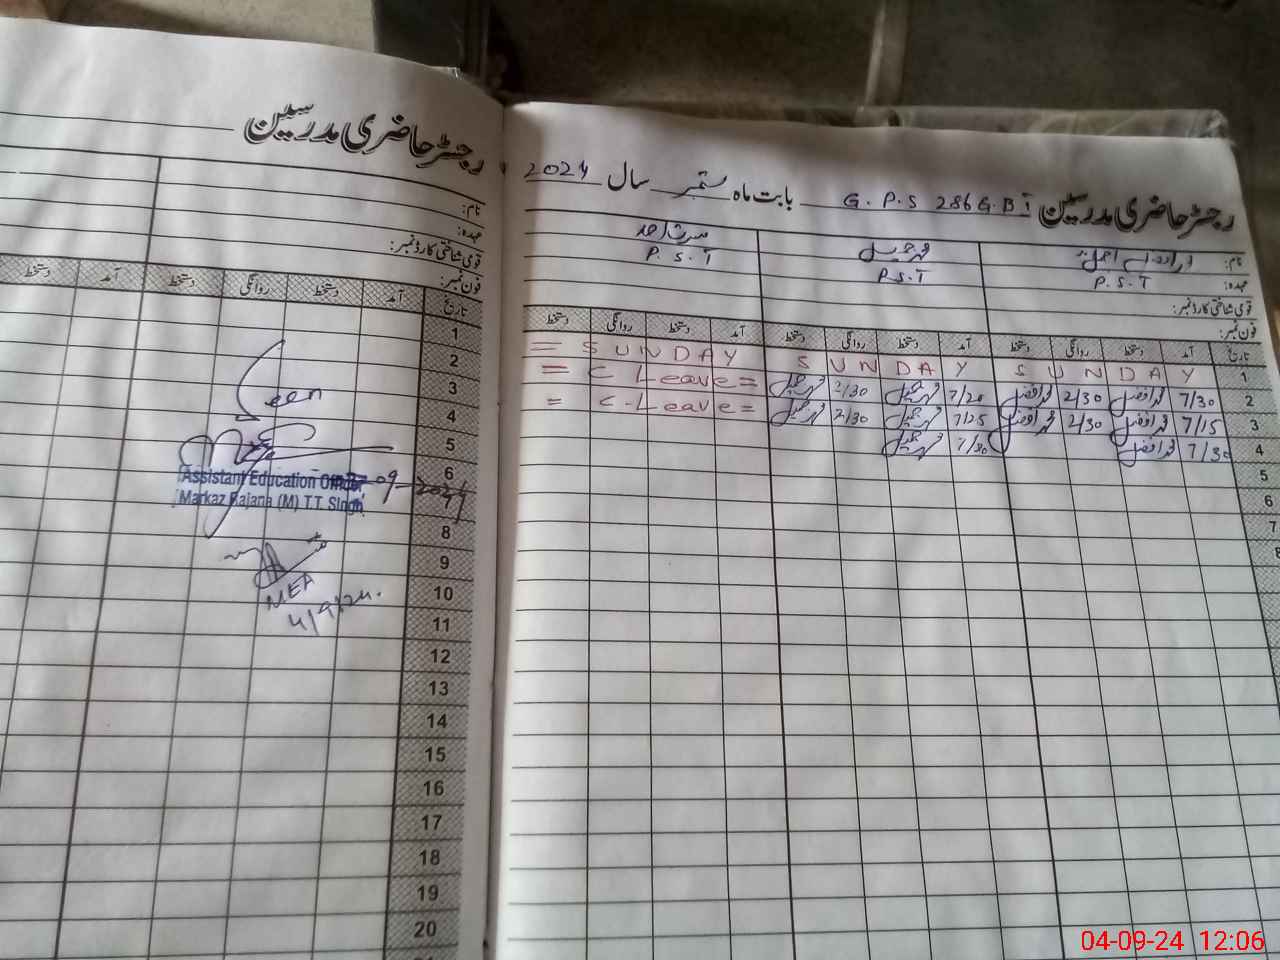 رجسٹر حاضری مدرسین
نام:
عہدہ:
قومی شناختی کارڈ نمبر:
فون نمبر:
تاریخ آمد دستخط روانگی دستخط آمد دستخط
1
2
3
4
5
6
7
8
9
10
11
12
13
14
15
16
17
18
19
20
Seen
Assistant Education Officer
Markaz Rajana (M) T.T. Singh
09-2024
MEA
4/9/24.
رجسٹر حاضری مدرسین G.P.S 286 G.B I بابت ماہ ستمبر سال 2024
نام: محمد جمیل
عہدہ: P.S.T P.S.T P.S.T
قومی شناختی کارڈ نمبر:
فون نمبر:
تاریخ آمد دستخط روانگی دستخط آمد دستخط روانگی دستخط آمد دستخط روانگی دستخط
1 SUNDAY SUNDAY = SUNDAY
2 7/30 محمد افضل 2/30 محمد افضل 7/20 محمد جمیل 2/30 محمد جمیل = C Leave =
3 7/15 محمد افضل 2/30 محمد افضل 7/25 محمد جمیل 2/30 محمد جمیل = C-Leave =
4 7/30 محمد افضل 7/30 محمد جمیل
5
6
7
8
04-09-24 12:06